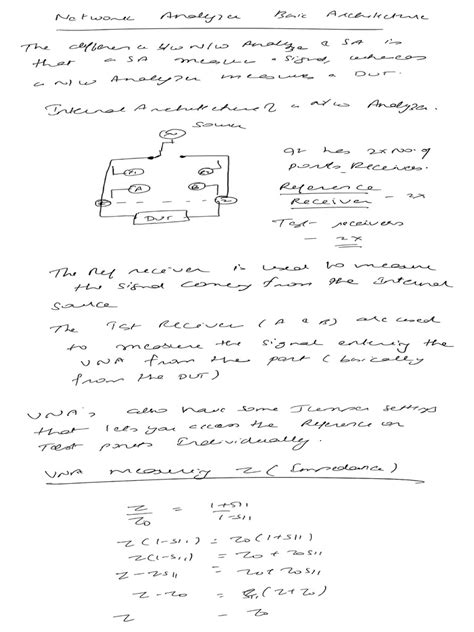 Network Analyzer Basic Architecture
The difference b/w N/w Analyze & SA is
that a SA measure a signal, whereas
a N/W Analyzer measures a DUT.
Internal Architecture of a N/W Analyzer.
Source
It has 2x No. of
ports Receives.
R1
R2
A
B
Reference
Receiver - 2x
DUT
Test receivers
- 2x
The Ref receiver is used to measure
the signal coming from the Internal
source
The Test Receiver (A & B) are used
to measure the signal entering the
VNA from the port (basically
from the DUT)
VNA's also have some Jumper settings
that lets you access the Reference or
Test ports Individually.
VNA measuring Z (Impedance)
Z/Z0 = 1+S11/1-S11
Z(1-S11) = Z0(1+S11)
Z(1-S11) = Z0 + Z0S11
Z-ZS11 = Z0+Z0S11
Z-Z0 = S11(Z+Z0)
Z - Z0